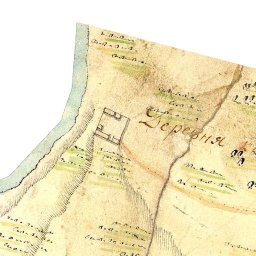 Деревня